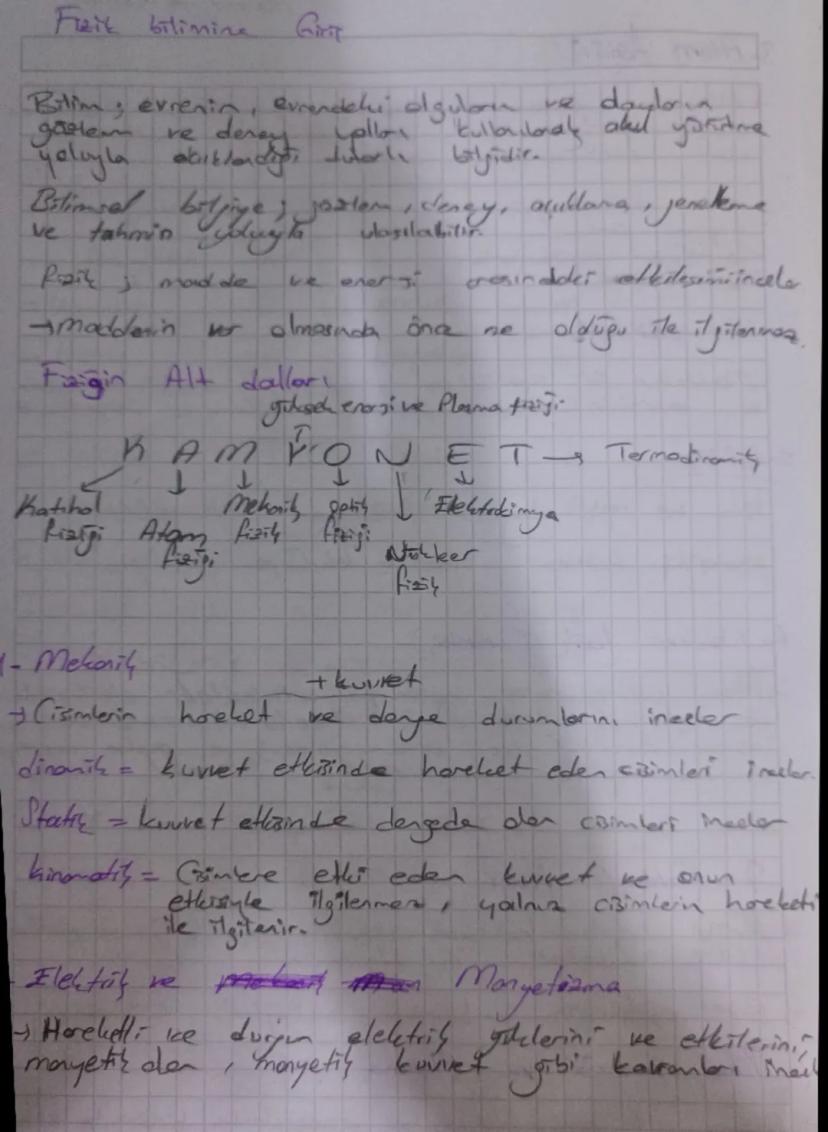 Fizik bilimine Giriş
Bilim; evrenin, evrendeki olguların ve olayların
gözlem ve deney yolları kullanılarak akıl yürütme
yoluyla açıklandığı tutarlı bilgidir.
Bilimsel bilgiye; gözlem, deney, açıklama, jenelleme
ve tahmin yoluyla ulaşılabilir.
Fizik; madde ve enerji arasındaki etkileşimi inceler
→ maddenin var olmasında önce ne olduğu ile ilgilenmez.
Fiziğin Alt dalları
yüksek enerji ve Plazma fiziği
K A M Y O N E T → Termodinamik
Katıhal fiziği
Atom fiziği
Mekanik fizik
optik fiziği
Nükleer fizik
Elektrokimya
1- Mekanik
+ kuvvet
→ Cisimlerin hareket ve denge durumlarını inceler
dinamik = kuvvet etkisinde hareket eden cisimleri inceler.
Statik = kuvvet etkisinde dengede olan cisimleri inceler
kinematik = Cisimlere etki eden kuvvet ve onun
etkisiyle ilgilenmez, yalnız cisimlerin hareketi
ile ilgilenir.
- Elektrik ve Manyetizma
→ Hareketli ve durgun elektrik yüklerini ve etkilerini,
manyetik alan, manyetik kuvvet gibi kavramları incel